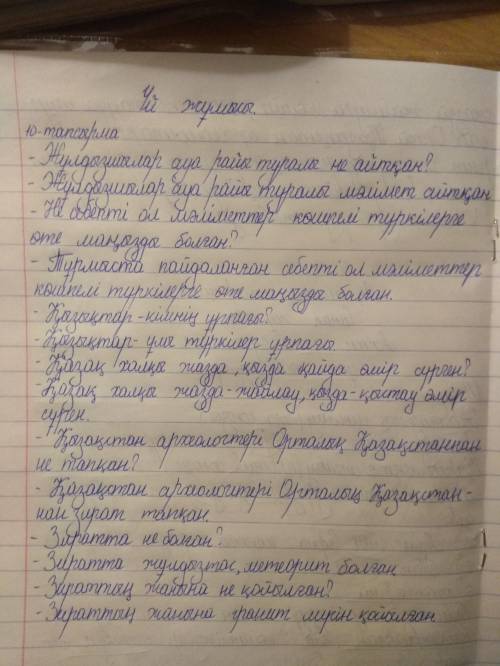 Үй жұмысы.
10-тапсырма
- Жұлдызшылар ауа райы туралы не айтқан?
- Жұлдызшылар ауа райы туралы мәлімет айтқан
- Не себепті ол мәліметтер көшпелі түркілерге
өте маңызды болған?
- Тұрмыста пайдаланған себепті ол мәліметтер
көшпелі түркілерге өте маңызды болған.
- Қазақтар-кімнің ұрпағы?
- Қазақтар-ұлы түркілер ұрпағы
- Қазақ халқы жазда, қызда қайда өмір сүрген?
- Қазақ халқы жазда-жайлау, қызда-қыстау өмір
сүрген.
- Қазақстан археологтері Орталық Қазақстаннан
не тапқан?
- Қазақстан археологтері Орталық Қазақстан-
нан зират тапқан.
- Зиратта не болған?
- Зиратта жұлдызтас, метеорит болған
- Зираттың жанына не қойылған?
- Зираттың жанына гранит мүсін қойылған